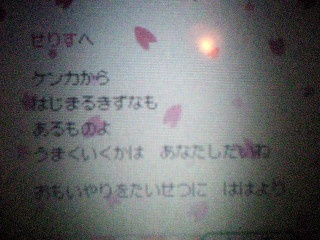 せりすへ
ケンカから
はじまるきずなも
あるものよ
うまくいくかは　あなたしだいね
おもいやりをたいせつに　ははより